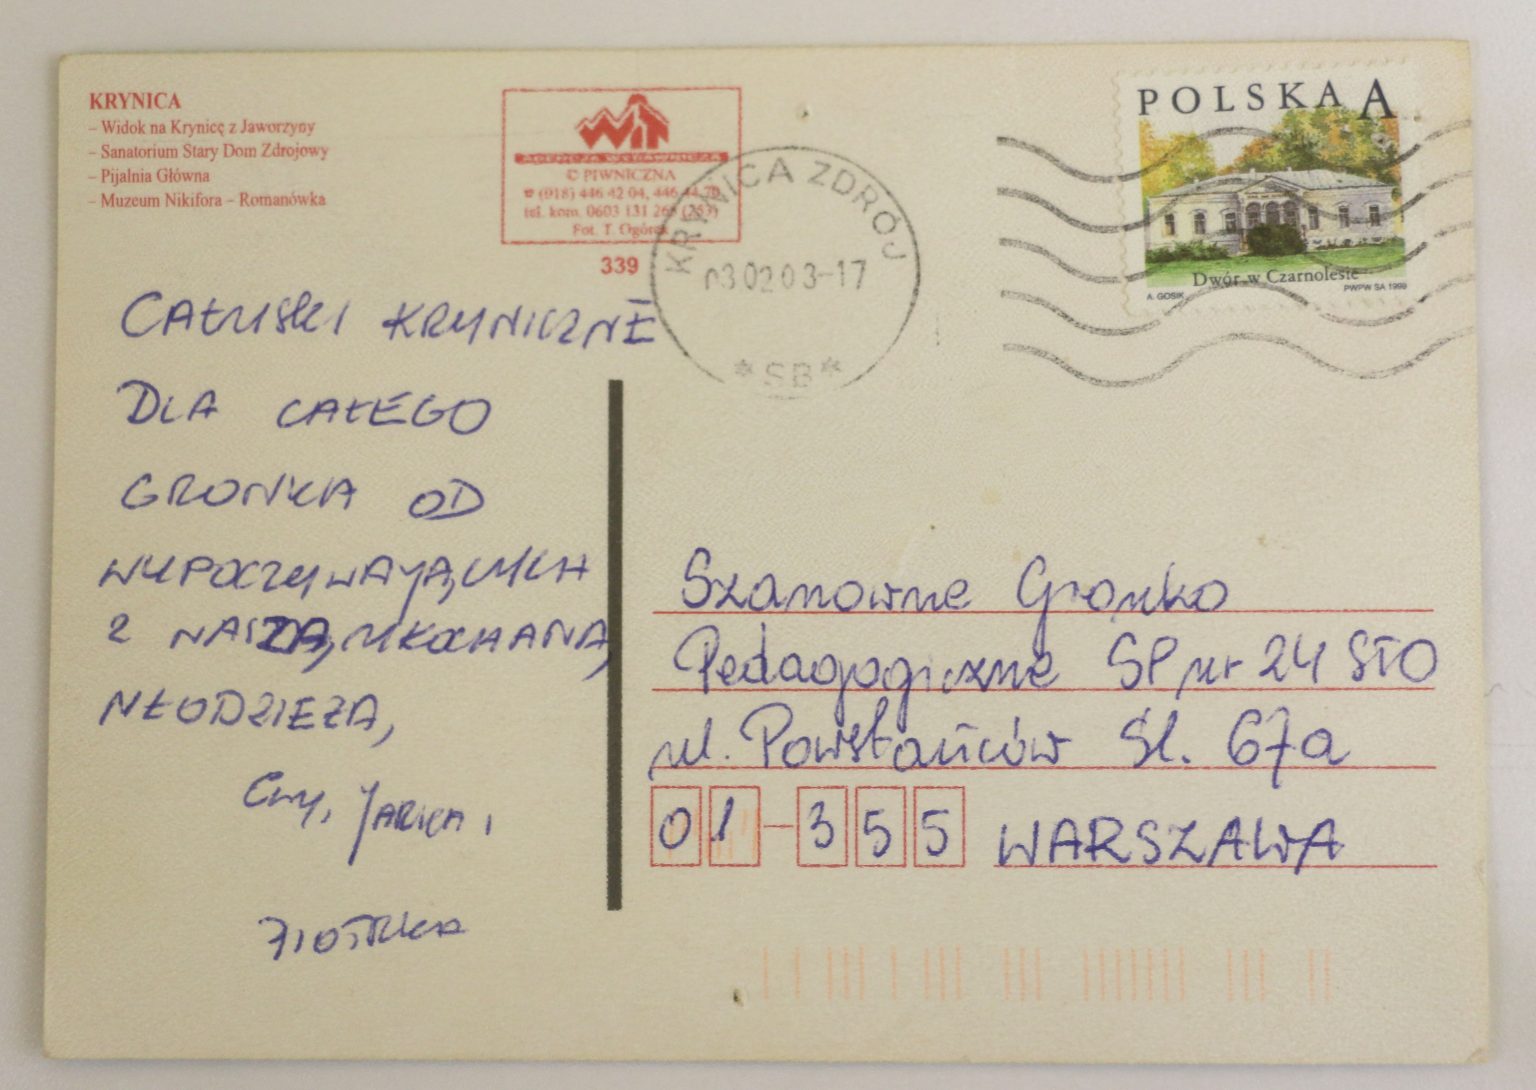 KRYNICA
– Widok na Krynicę z Jaworzyny
– Sanatorium Stary Dom Zdrojowy
– Pijalnia Główna
– Muzeum Nikifora – Romanówka
WiT
AGENCJA WYDAWNICZA
© PIWNICZNA
☎ (018) 446 42 04, 446 44 20
tel. kom. 0603 131 263 (253)
Fot. T. Ogórek
339
KRYNICA ZDRÓJ
030203-17
*SB*
POLSKA A
Dwór w Czarnolesie
A. GOSIK
PWPW SA 1999
CAŁUSKI KRYNICZNE
DLA CAŁEGO
GRONKA OD
WYPOCZYWAJĄCYCH
Z NASZĄ UKOCHANĄ
MŁODZIEŻĄ,
JARKA,
Szanowne Gronko
Pedagogiczne SP nr 24 STO
ul. Powstańców Śl. 67a
01-355 WARSZAWA